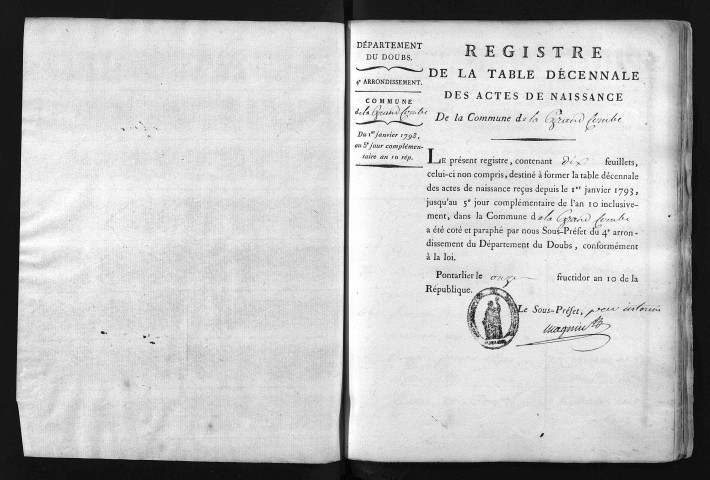 DÉPARTEMENT
DU DOUBS.
4e ARRONDISSEMENT.
COMMUNE
de la Grand Combe
Du 1er janvier 1793,
au 5e jour complémen-
taire an 10 rép.
REGISTRE
DE LA TABLE DÉCENNALE
DES ACTES DE NAISSANCE
De la Commune de la Grand Combe
LE présent registre, contenant dix feuillets,
celui-ci non compris, destiné à former la table décennale
des actes de naissance reçus depuis le 1er janvier 1793,
jusqu'au 5e jour complémentaire de l'an 10 inclusive-
ment, dans la Commune de la Grand Combe
a été coté et paraphé par nous Sous-Préfet du 4e arron-
dissement du Département du Doubs, conformément
à la loi.
Pontarlier le onze fructidor an 10 de la
République.
Le Sous-Préfet, par interim
magnin